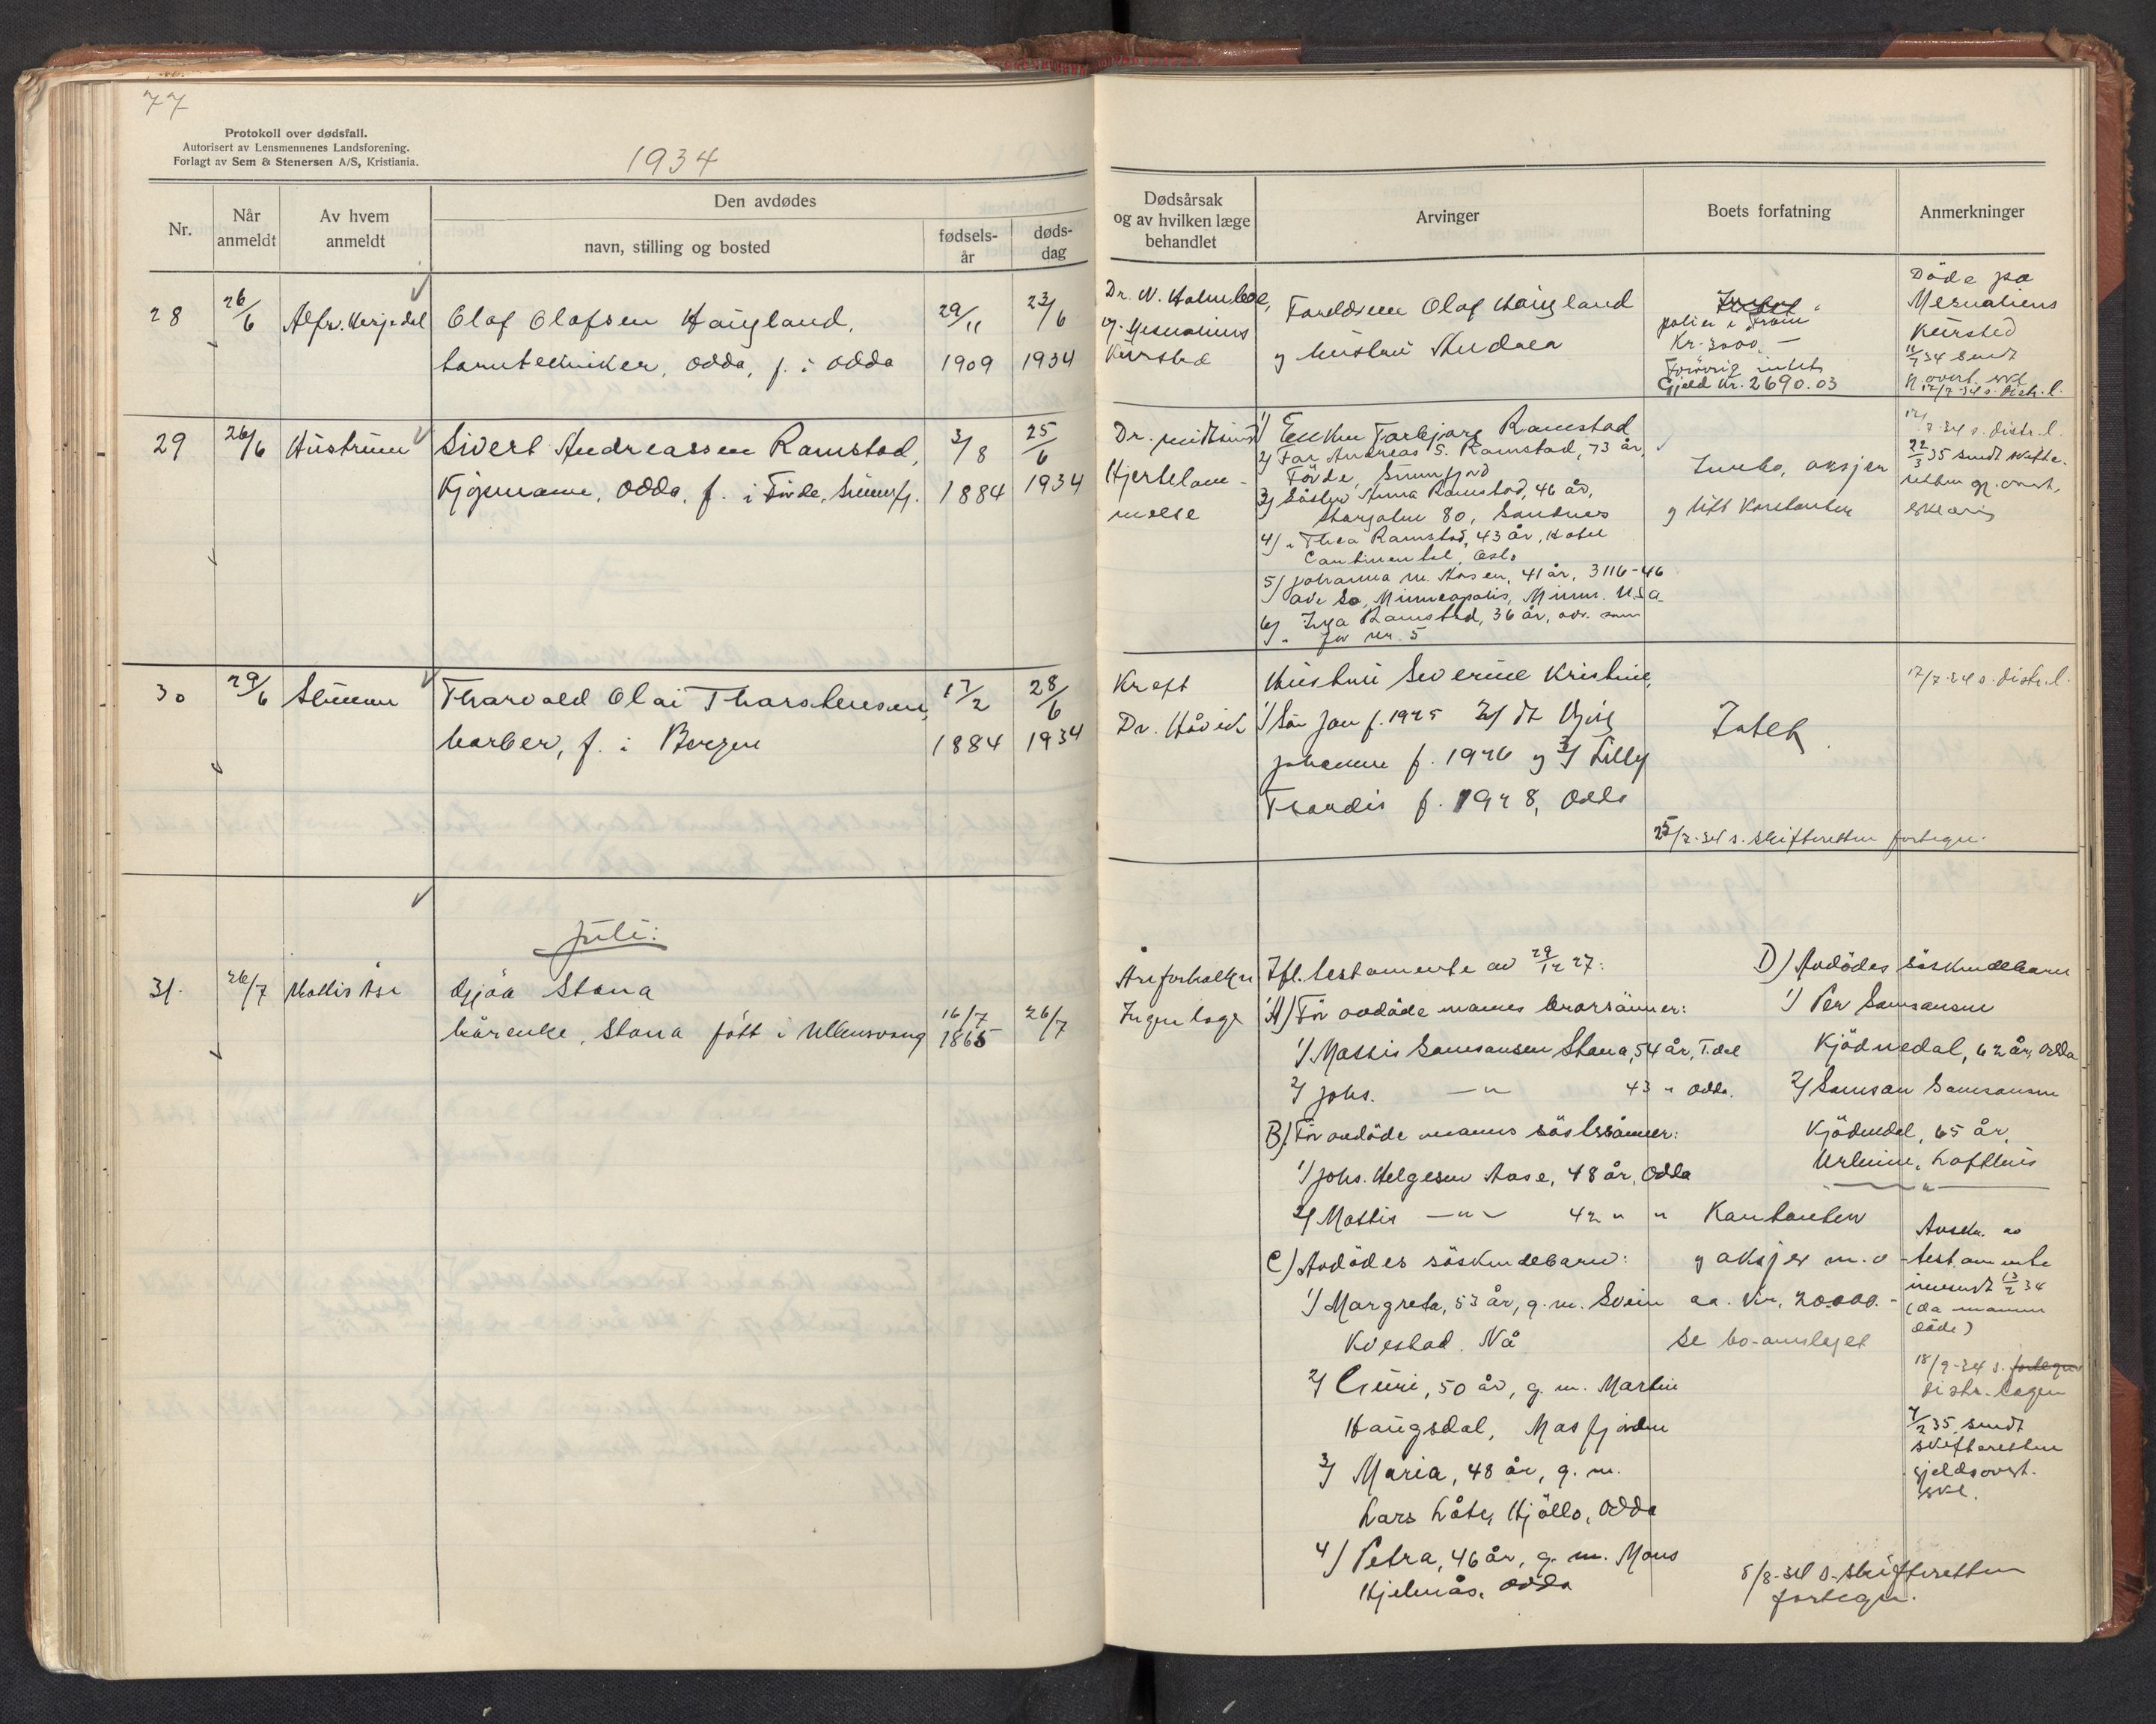 77
Protokoll over dødsfall.
Autorisert av Lensmennenes Landsforening.
Forlagt av Sem & Stenersen A/S, Kristiania.
1934
Nr.
Når anmeldt
Av hvem anmeldt
Den avdødes
navn, stilling og bosted
fødsels-år
døds-dag
Dødsårsak og av hvilken læge behandlet
Arvinger
Boets forfatning
Anmerkninger
28
26/6
Alfr.
Olaf Olafsen Haugland,
tanntekniker, Odda, f. i Odda
29/11
1909
23/6
1934
Dr. N. Holmboe,
Mesnaliens
Kursted
Foreldrene Olaf Haugland
og hustru Andrea
polise i "Fram"
Kr. 2000.-
Forøvrig intet
Gjeld kr. 2690.03
Döde på
Mesnaliens
Kursted
11/7 34 sendt
17/7-34 s. distr.l.
29
26/6
Hustruen
Sivert Andreassen Ramstad,
Kjöpmann, Odda, f. i Förde, Sunnfj.
3/8
1884
25/6
1934
Dr. Midtsund
Hjertelam-
melse
1) Enken Torbjørg Ramstad
2) Far Andreas S. Ramstad, 73 år,
Förde, Sunnfjord
3) Söster Anna Ramstad, 46 år,
Storgaten 80, Sandnes
4) " Thea Ramstad, 43 år, Hotel
Continental, Oslo
5) Johanna M. Aasen, 41 år, 3116-46
ave So, Minneapolis, Minn. U.S.A.
6) Inga Ramstad, 36 år, adr. som
" for nr. 5
Innbo, aksjer
og litt kontanter
17/7-34 s. distr.l.
22/3 35 sendt skifte-
retten gj. overt.
erklæring
30
29/6
Sönnen
Thorvald Olai Thorstensen,
barber, f. i Bergen
17/2
1884
28/6
1934
Kreft
Dr. Håvik
Hustru Severine Kristine,
1) Sön Jan f. 1925 2) dt
Johanne f. 1926 og 3) Lilly
Tordis f. 1928, Odda
Intet
17/7-34 s. distr.l.
25/7-34 s. skifteretten fortegn.
Juli:
31.
26/7
Mattis Åse
Gjöa Stana
kårenke, Stana födt i Ullensvang
16/7
1865
26/7
Åreforkalkn
Ingen læge
Ifl. testamente av 29/12 27:
A) För avdöde mannes brorsönner:
1) Mattis Samsonsen Stana, 54 år, T.dal
2) Johs. —"— 43 " Odda.
B) För avdöde mannes söstersönner:
1) Johs. Helgesen Aase, 48 år, Odda
2) Mattis —"— 42 " "
C) Avdödes söskendebarn:
1) Margreta, 53 år, g.m. Svein
Kvestad. Nå
2) Guri, 50 år, g.m. Martin
Haugsdal, Masfjorden
3) Maria, 48 år, g.m.
Lars Låte, Hjöllo, Odda
4) Petra, 46 år, g.m. Mons
Hjelmås, Odda
D) Avdödes söskendebarn
1) Per Samsonsen
Kjödnedal, 62 år, Odda
2) Samson Samsonsen
Kjödnedal, 65 år,
Urheim, Lofthus
Kontanter
og aksjer m.v.
ca. kr. 20.000.-
Se bo-omslaget
Avskr. av
testamente
innsendt 13/2 34
(da mannen
döde)
18/9-34 s. fortegn
distr.legen
7/2 35 sendt
skifteretten
gjeldsovert.
erkl.
8/8-34 s. skifteretten
fortegn.